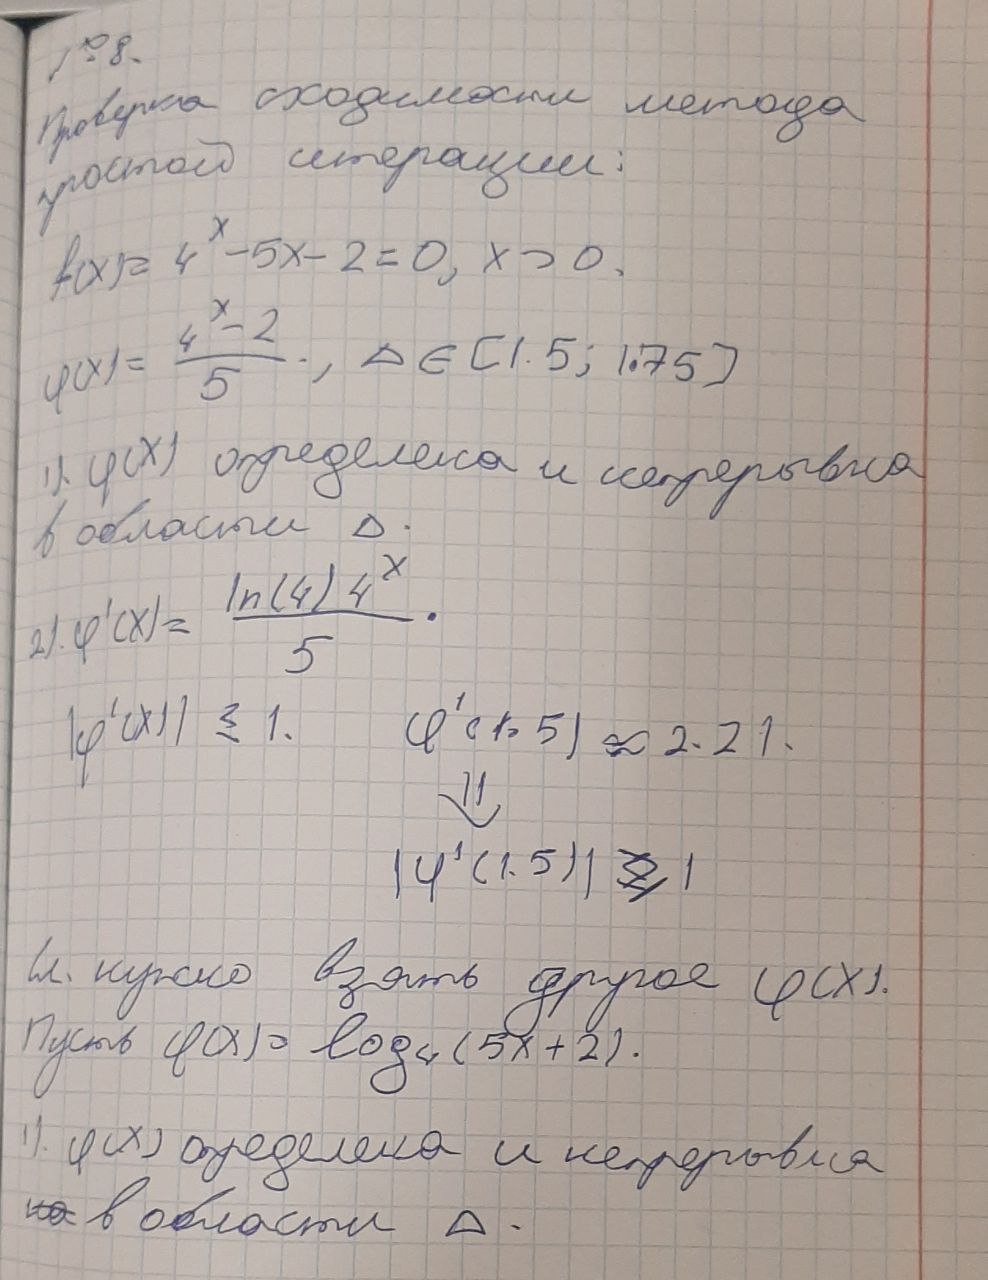 №8.
Проверка сходимости метода
простой итерации:
f(x)= 4^x-5x-2=0, x>0.
φ(x)= (4^x-2)/5., Δ∈[1.5; 1.75]
1). φ(x) определена и непрерывна
в области Δ.
2). φ'(x)= (ln(4) 4^x)/5.
|φ'(x)| ≤ 1. φ'(1.5) ≈ 2.21.
⇓
|φ'(1.5)| ⩾ 1
нужно взять другое φ(x).
Пусть φ(x)= log₄(5x+2).
1). φ(x) определена и непрерывна
в области Δ.